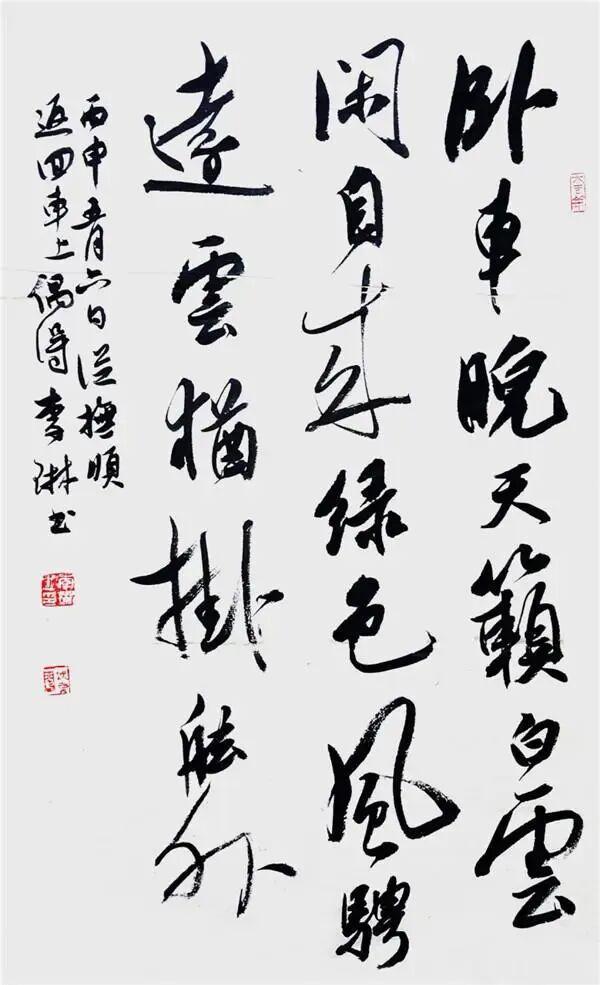 卧車晚天籟白雲
闲自来绿色風騁
遠雲猶掛外
丙申五月六日從撫順
返回車上偶得李琳书